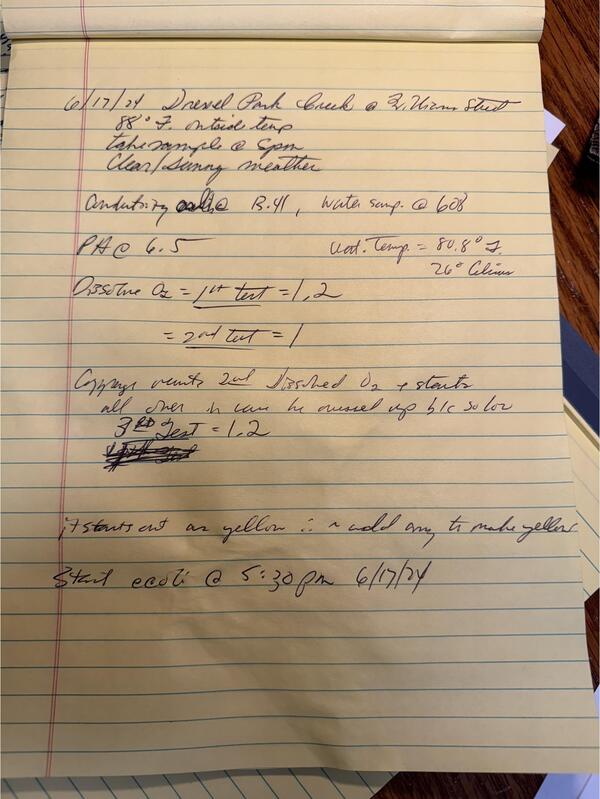 6/17/24 Drexel Park Creek @ Williams Street
88° F. outside temp
take sample @ 5pm
Clear/Sunny weather
Conductivity @ 13.41, water samp. @ 608
PH @ 6.5 Wat. Temp. = 80.8° F.
26° Celcius
Dissolve O2 = 1st test = 1.2
= 2nd test = 1
wants 2nd dissolved O2 & starts
all over in case he messed up b/c so low
3RD Test = 1.2
it starts out as yellow ∴ add any to make yellow
Start ecoli @ 5:30pm 6/17/24